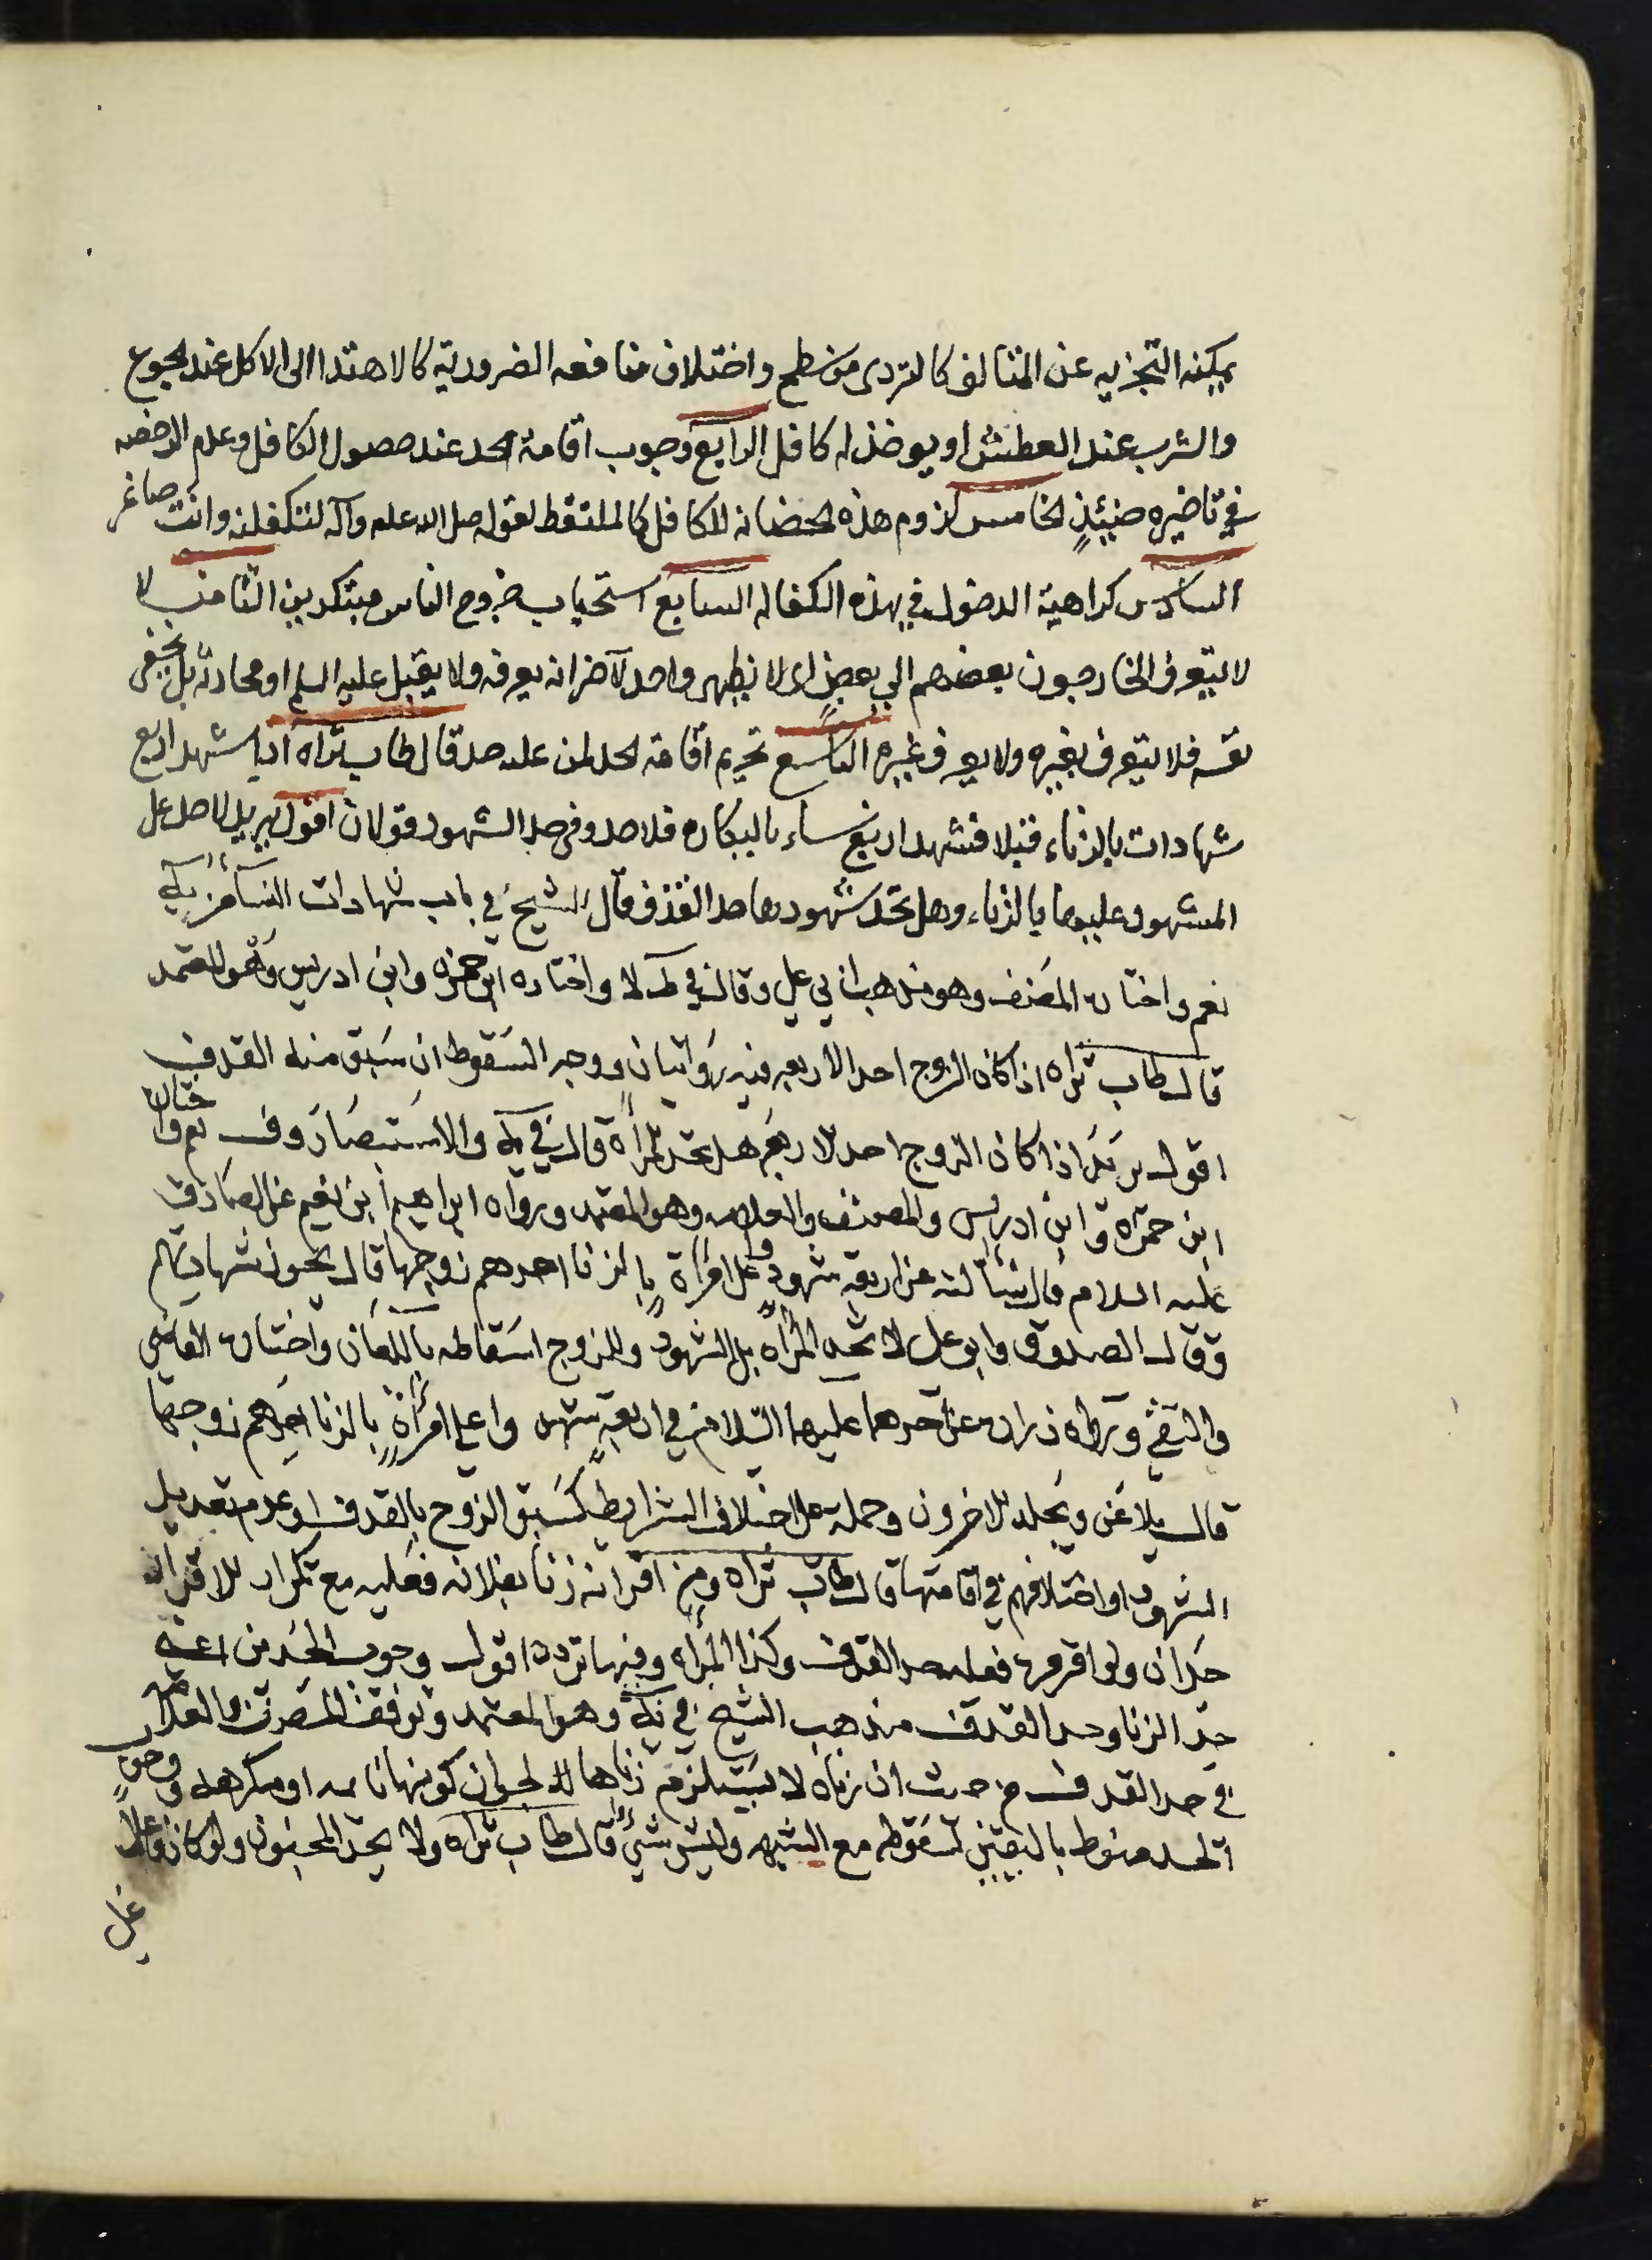 يمكنه التحرز به عن المتالف كالتردى من سطح واختلاف منافعه الضرورية كالاهتدا الى الاكل عند الجوع
والشرب عند العطش او يوخذ له كافل الرابع وجوب اقامة الحد عند حصول الكافل وعدم الرخصه
في تاخيره حينئذٍ الخامس لزوم هذه الحضانه للكافل كالملتقط لقوله صلى الله عليه وآله لتكفلنه وانت صاغر
السادس كراهية الدخول في هذه الكفاله السابع استحباب خروج الناس مبتكرين الثامن لا
لا يتعرف الخارجون بعضهم الى بعضٍ اى لا يظهر واحد لآخر انه يعرفه ولا يقبل عليه السلم او محادثة بل يخفى
نفسه فلا يتعرف بغيره ولا يعرف غيره التاسع تحريم اقامة الحد لمن عليه حد قال طاب ثراه اذا شهد اربع
شهادات بالزناء قبلا فشهد اربع نساء بالبكاره فلا حد وفى حد الشهود قولان اقول يريد لا حد على
المشهود عليها بالزناء وهل تحد شهودها حد القذف قال الشيخ في باب شهادات النساء من يه
نعم واختاره المصنف وهو مذهب ابى على وقال في ط لا واختاره ابن حمزه وابن ادريس وهو المعتمد
قال طاب ثراه اذا كان الزوج احد الاربعه فيه روايتان ووجه السقوط ان سبق منه القذف
اقول يريد اذا كان الزوج احد الاربعه هل تحد المرأة قال في يه والاستبصار وف نعم واختاره
ابن حمزه وابن ادريس والمصنف والعلامه وهو المعتمد ورواه ابراهيم ابن نعيم عن الصادق
عليه السلام قال سألته عن اربعه شهود على امرأة بالزنا احدهم زوجها قال يجوز شهادتهم
وقال الصدوق وابو على لا تحد المرأة بل الشهود وللزوج اسقاطه باللعان واختاره القاضى
والتقى ورواه زراره عن احدهما عليهما السلام في اربعه شهدوا على امرأةٍ بالزنا احدهم زوجها
قال يلاعن ويجلد الاخرون وحمله على اختلاف الشرايط كسبق الزوج بالقذف او عدم تعديل
الشهود او اختلافهم في اقامتها قال طاب ثراه ومن اقر انه زنا بفلانه فعليه مع تكرار الاقرار
حدان ولو اقر مره فعليه حد القذف وكذا المرأه وفيها تردد اقول وجوب الحدين اعنى
حد الزنا وحد القذف مذهب الشيخ في يه وهو المعتمد وتوقف المصنف والعلامه
في حد القذف من حيث ان زناه لا يستلزم زناها لجواز كونها نائمه او مكرهه ووجوب
الحد منوط باليقين لسقوطه مع الشبهه وليس شئ قال طاب ثراه ولا يحد المجنون ولو كان فاعلا
على